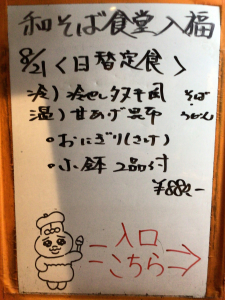 和そば食堂入福
8/21〈日替定食〉
冷)冷やしタヌキ風 そば
温)甘あげ昆布 うどん
・おにぎり(さけ)
・小鉢2品付
¥880-
入口
こちら